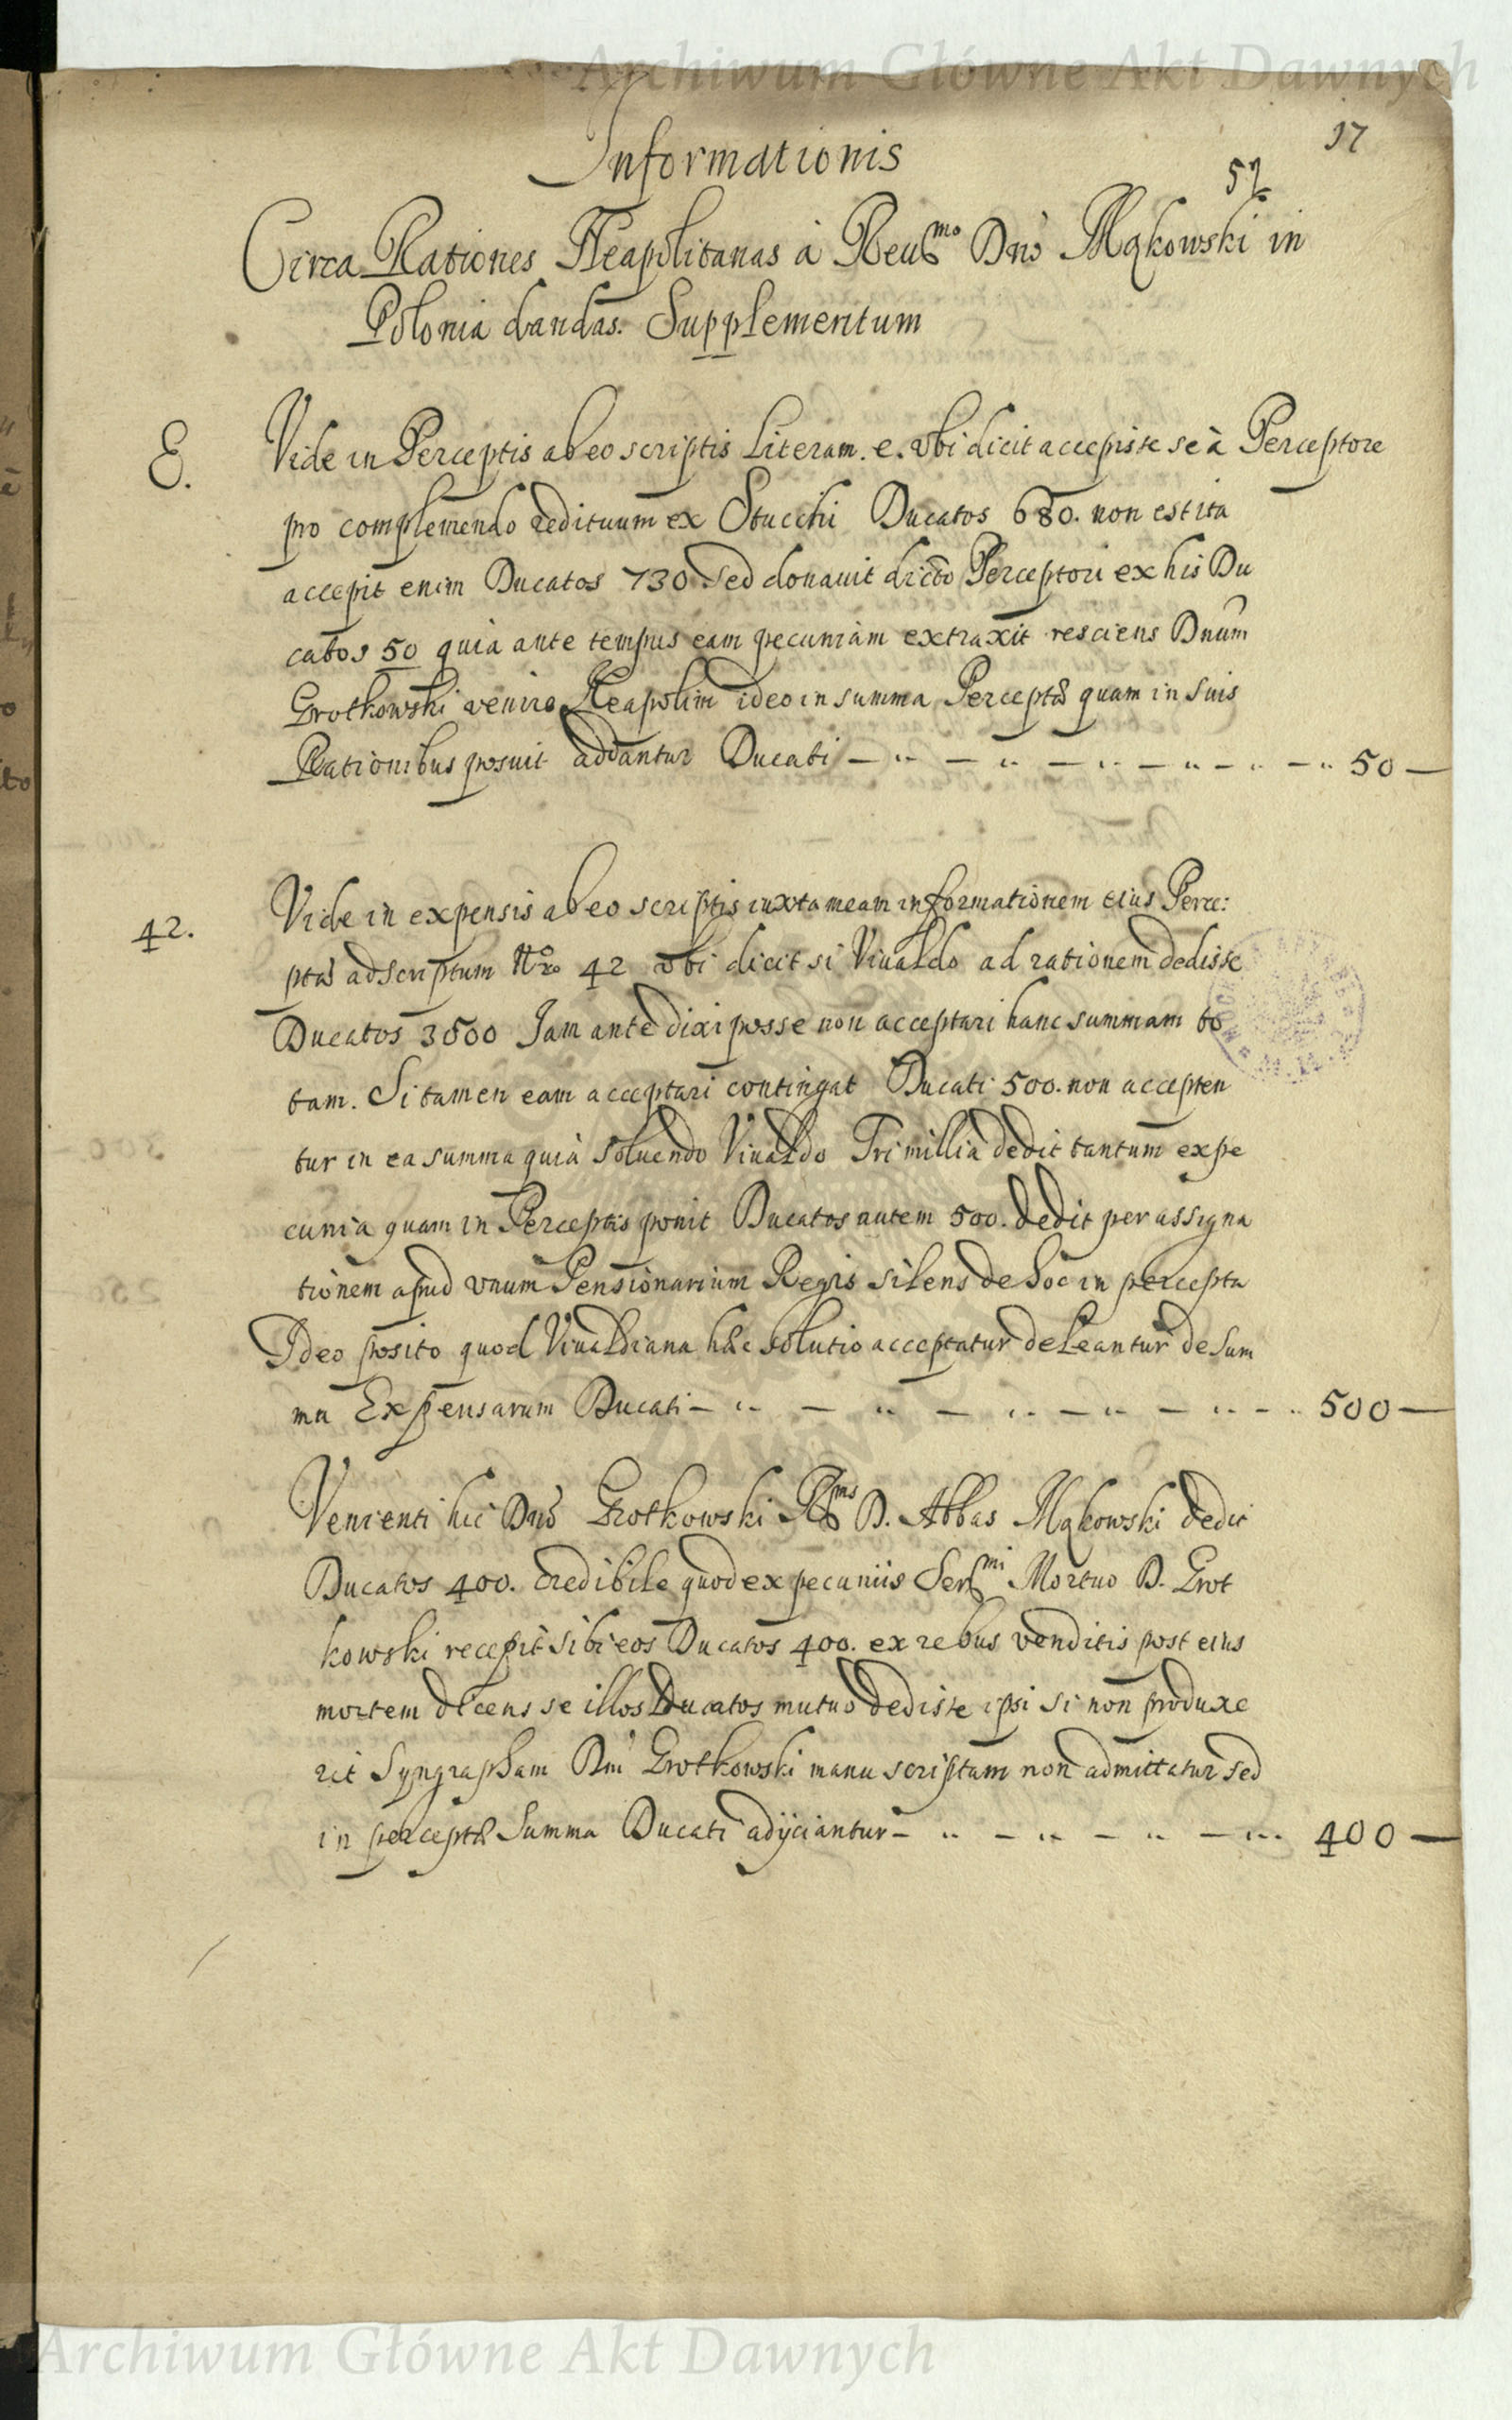 Archiwum Główne Akt Dawnych
17
Informationis
57
Circa Rationes Neapolitanas à Reu^mo Dno Mąkowski in
Polonia dandas. Supplementum
E. Vide in Perceptis ab eo scriptis Literam. e. vbi dicit accepisse se à Perceptore
pro complemendo redituum ex Stucchi Ducatos 680. non est ita
accepit enim Ducatos 730 sed donauit dicto Perceptori ex his Du
catos 50 quia ante tempus eam pecuniam extraxit resciens Dnum
Grotkowski venire Neapolim ideo in summa Perceptæ quam in suis
Rationibus posuit addantur Ducati 50
42. Vide in expensis ab eo scriptis iuxta meam informationem eius Perce:
ptæ adscriptum Nro 42 vbi dicit si Viualdo ad rationem dedisse
Ducatos 3500 Jam ante dixi posse non acceptari hanc summam to
tam. Si tamen eam acceptari contingat Ducati 500. non accepten
tur in ea summa quia soluendo Viualdo Tri millia dedit tantum ex pe
cunia quam in Perceptis ponit Ducatos autem 500. dedit per assigna
tionem apud vnum Pensionarium Regis silens de hoc in percepta
Ideo posito quod Viualdiana hæc solutio acceptatur deleantur de sum
ma Expensarum Ducati 500
Venienti huc Dno Grotkowski R^ms D. Abbas Mąkowski dedit
Ducatos 400. credibile quod ex pecuniis Ser^mi Mortuo D. Grot
kowski recepit sibi eos Ducatos 400. ex rebus venditis post eius
mortem dicens se illos Ducatos mutuo dedisse ipsi si non produxe
rit Syngrapham Dni Grotkowski manu scriptam non admittatur sed
in perceptæ Summa Ducati adijciantur 400
Archiwum Główne Akt Dawnych